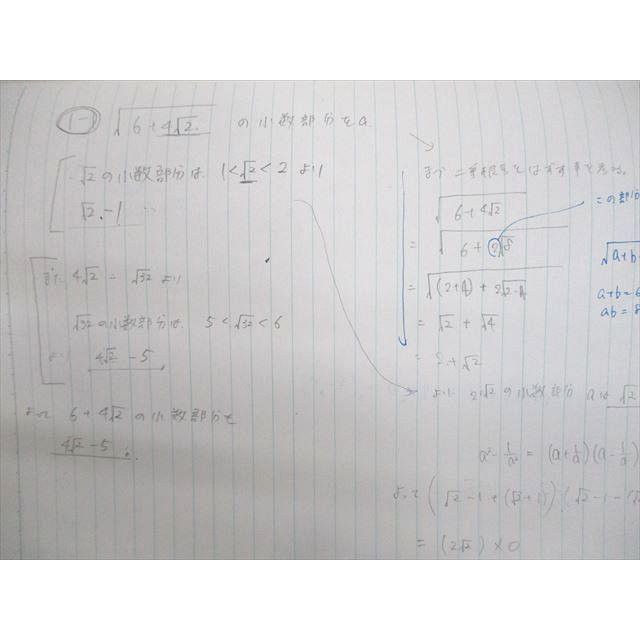 √6+4√2 の小数部分をa
√2の小数部分は 1<√2<2 より
√2-1
また 4√2 = √32 より
√32の小数部分は 5<√32<6
より 4√2-5
よって 6+4√2の小数部分を
4√2-5
まず 二重根号をはずす事を考える。
√6+4√2
= √6+2√8 この部分
= √(2+4)+2√2·4 √a+b
= √2+√4 a+b=6
= 2+√2 ab=8
より 2+√2の小数部分 aは √2
a²-1/a² = (a+1/a)(a-1/a)
よって (√2-1+(√2+1)) (√2-1-(√2
= (2√2)×0